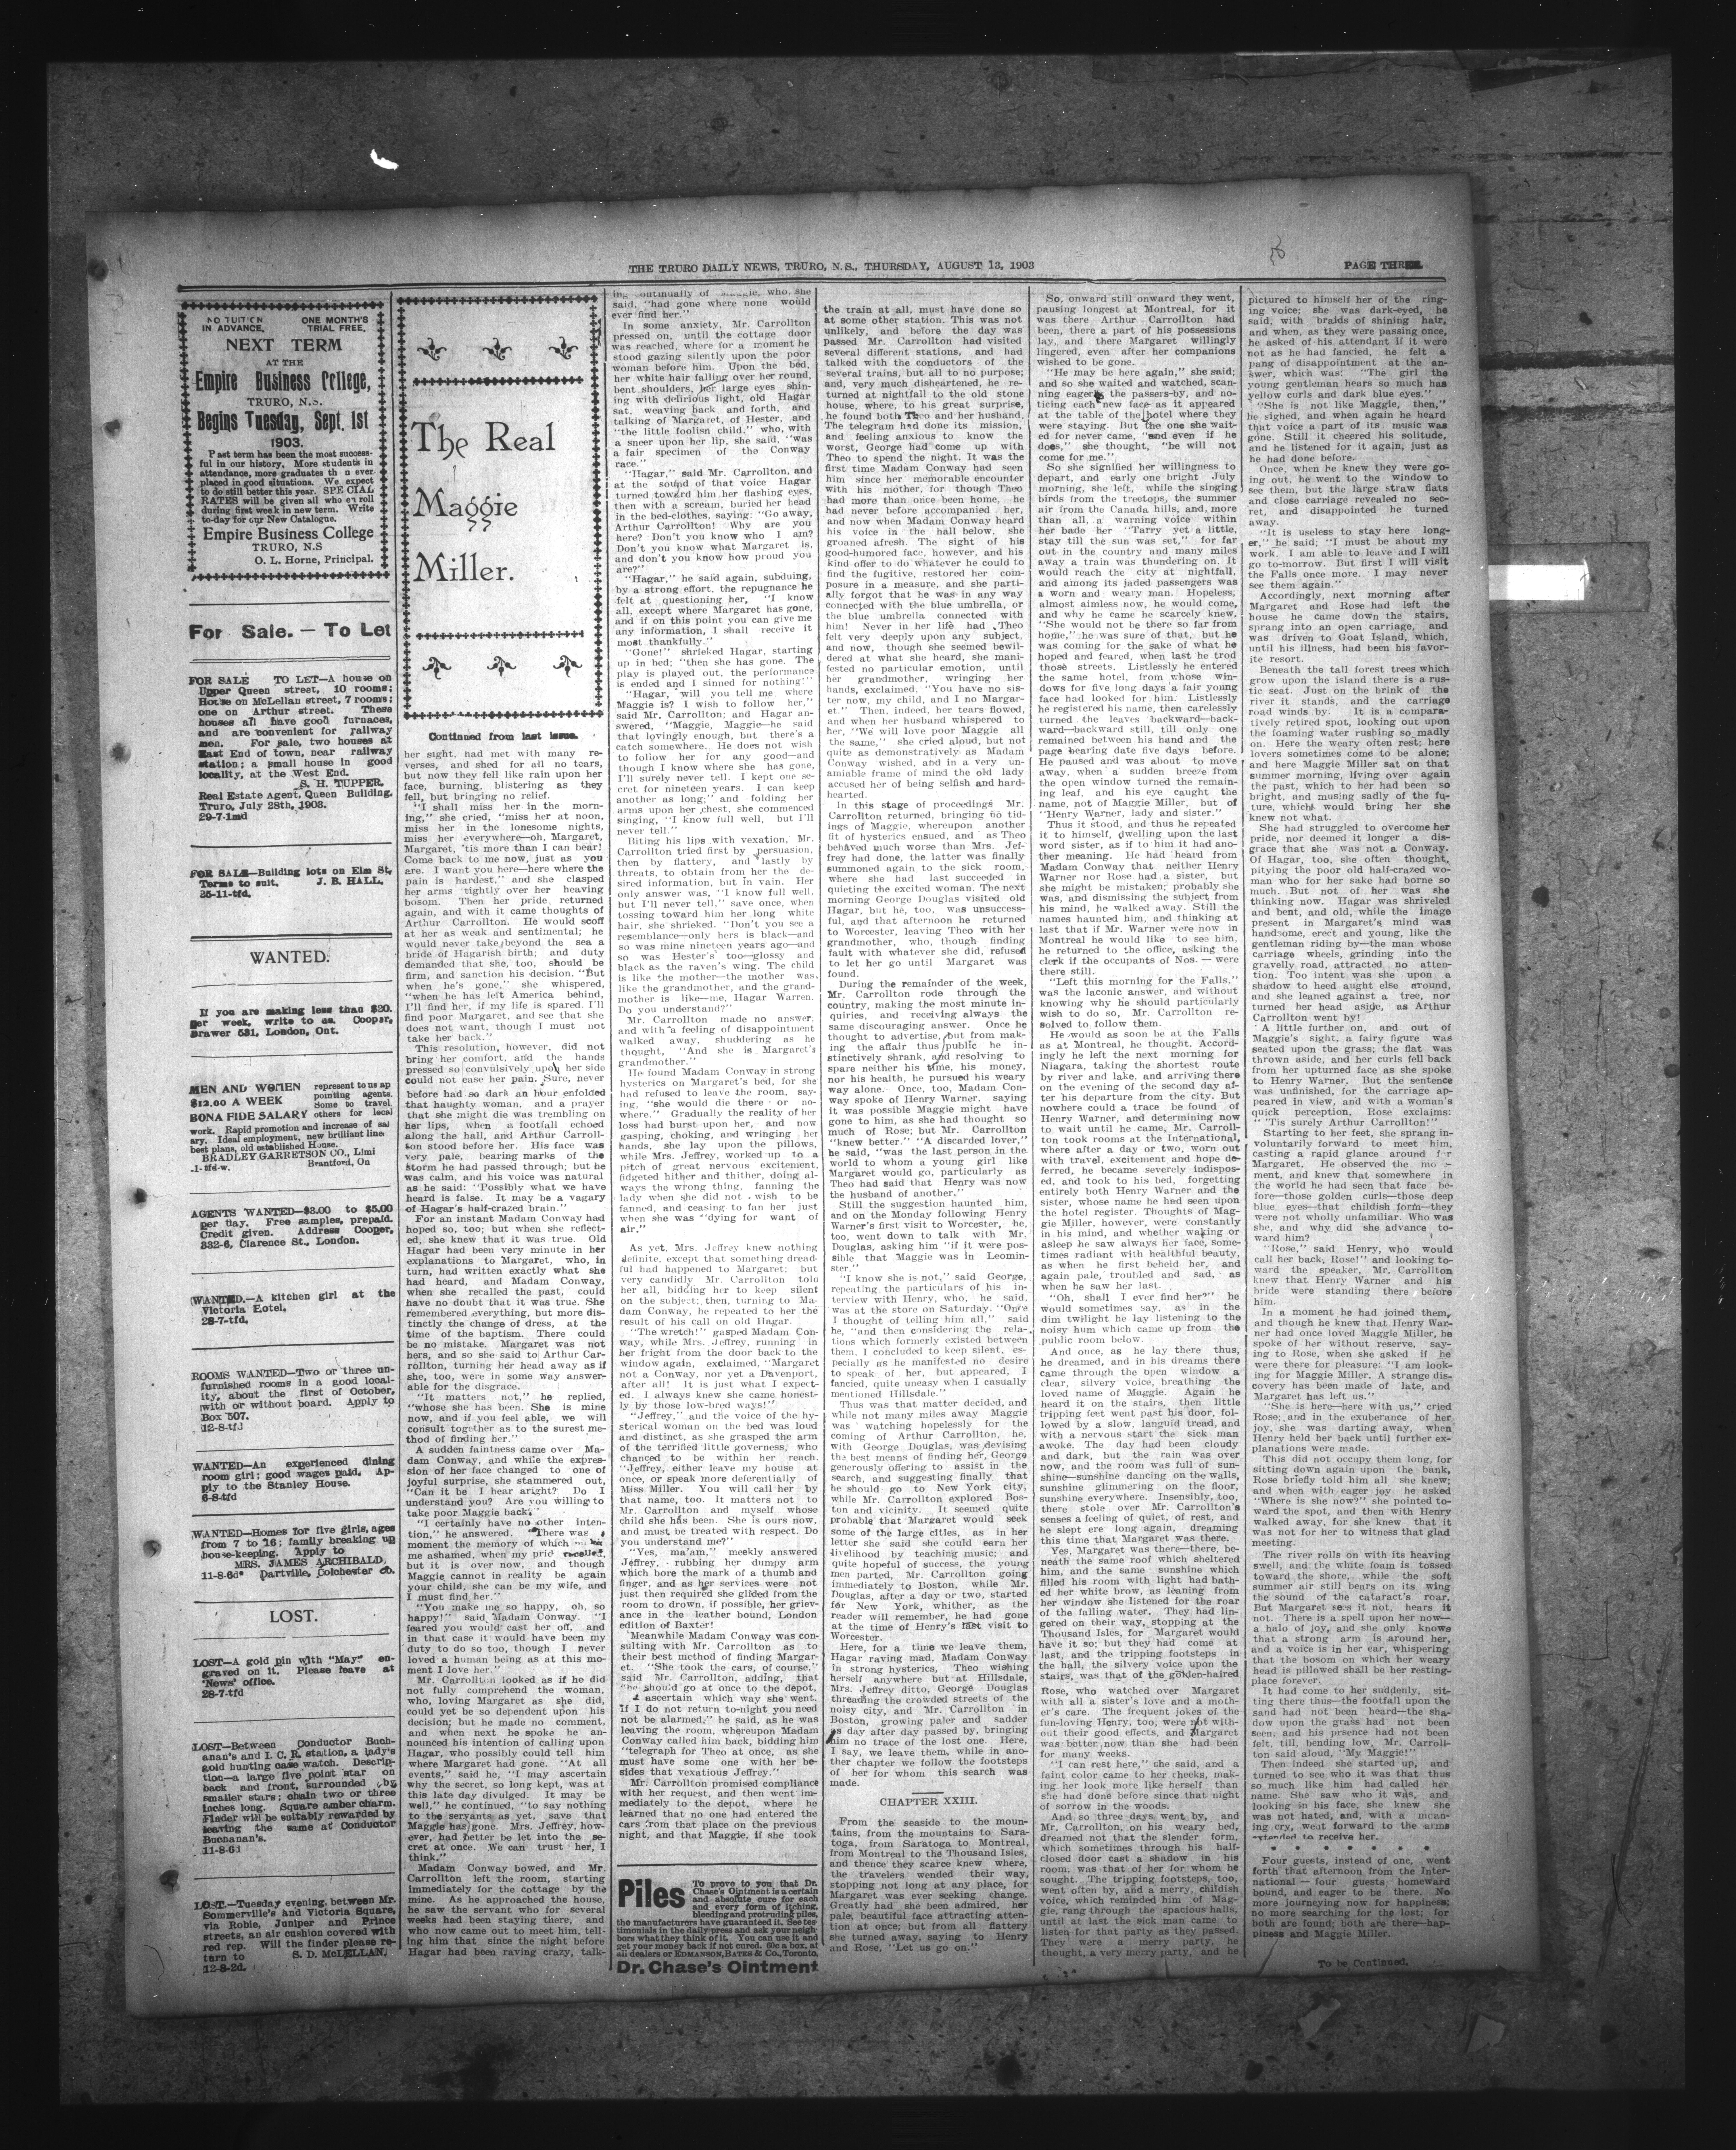 THE TRURO DAILY NEWS, TRURO, N. S., THURSDAY, AUGUST 13, 1903
PAGE THREE.
NO TUITION IN ADVANCE,
ONE MONTH'S TRIAL FREE,
NEXT TERM
AT THE
Empire Business College,
TRURO, N.S.
Begins Tuesday, Sept. 1st
1903.
Past term has been the most success-
ful in our history. More students in
attendance, more graduates th n ever
placed in good situations. We expect
to do still better this year. SPECIAL
RATES will be given all who enroll
during first week in new term. Write
to-day for our New Catalogue.
Empire Business College
TRURO, N.S
O. L. Horne, Principal.
For Sale. — To Let
FOR SALE TO LET—A house on
Upper Queen street, 10 rooms;
House on McLellan street, 7 rooms;
one on Arthur street. These
houses all have good furnaces,
and are convenient for railway
men. For sale, two houses at
East End of town, near railway
station; a small house in good
locality, at the West End.
S. H. TUPPER,
Real Estate Agent, Queen Building,
Truro, July 28th, 1903.
29-7-1md
FOR SALE—Building lots on Elm St.
Terms to suit. J. B. HALL.
25-11-tfd.
WANTED.
If you are making less than $20.
per week, write to us. Cooper,
Drawer 531, London, Ont.
MEN AND WOMEN represent to us ap
$12.00 A WEEK pointing agents.
Some to travel
BONA FIDE SALARY others for local
work. Rapid promotion and increase of sal
ary. Ideal employment, new brilliant line
best plans, old established House.
BRADLEY GARRETSON CO., Limi
.1-tfd-w. Brantford, On
AGENTS WANTED—$3.00 to $5.00
per day. Free samples, prepaid.
Credit given. Address Cooper,
332-6, Clarence St., London.
WANTED.—A kitchen girl at the
Victoria Hotel.
28-7-tfd.
ROOMS WANTED—Two or three un-
furnished rooms in a good local-
ity, about the first of October,
with or without board. Apply to
Box 507.
12-8-tfd
WANTED—An experienced dining
room girl; good wages paid. Ap-
ply to the Stanley House.
6-8-tfd
WANTED—Homes for five girls, ages
from 7 to 16; family breaking up
house-keeping. Apply to
MRS. JAMES ARCHIBALD,
11-8-6d* Dartville, Colchester co.
LOST.
LOST—A gold pin with "May" en-
graved on it. Please leave at
'News' office.
28-7-tfd
LOST—Between Conductor Buch-
anan's and I. C. R. station, a lady's
gold hunting case watch. Descrip-
tion—a large five point star on
back and front, surrounded by
smaller stars; chain two or three
inches long. Square amber charm.
Finder will be suitably rewarded by
leaving the same at Conductor
Buchanan's.
11-8-6d
LOST—Tuesday evening, between Mr.
Sommerville's and Victoria Square,
via Robie, Juniper and Prince
streets, an air cushion covered with
red rep. Will the finder please re-
turn to S. D. McLELLAN.
12-8-2d.
The Real
Maggie
Miller.
Continued from last issue.
her sight, had met with many re-
verses, and shed for all no tears,
but now they fell like rain upon her
face, burning, blistering as they
fell, but bringing no relief.
"I shall miss her in the morn-
ing," she cried, "miss her at noon,
miss her in the lonesome nights,
miss her everywhere—oh, Margaret,
Margaret, 'tis more than I can bear!
Come back to me now, just as you
are. I want you here—here where the
pain is hardest," and she clasped
her arms tightly over her heaving
bosom. Then her pride returned
again, and with it came thoughts of
Arthur Carrollton. He would scoff
at her as weak and sentimental; he
would never take beyond the sea a
bride of Hagarish birth; and duty
demanded that she, too, should be
firm, and sanction his decision. "But
when he's gone," she whispered,
"when he has left America behind,
I'll find her, if my life is spared. I'll
find poor Margaret, and see that she
does not want, though I must not
take her back."
This resolution, however, did not
bring her comfort, and the hands
pressed so convulsively upon her side
could not ease her pain. Sure, never
before had so dark an hour enfolded
that haughty woman, and a prayer
that she might die was trembling on
her lips, when a footfall echoed
along the hall, and Arthur Carroll-
ton stood before her. His face was
very pale, bearing marks of the
storm he had passed through; but he
was calm, and his voice was natural
as he said: "Possibly what we have
heard is false. It may be a vagary
of Hagar's half-crazed brain."
For an instant Madam Conway had
hoped so, too; but when she reflect-
ed, she knew that it was true. Old
Hagar had been very minute in her
explanations to Margaret, who, in
turn, had written exactly what she
had heard, and Madam Conway,
when she recalled the past, could
have no doubt that it was true. She
remembered everything, but more dis-
tinctly the change of dress, at the
time of the baptism. There could
be no mistake. Margaret was not
hers, and so she said to Arthur Car-
rollton, turning her head away as if
she, too, were in some way answer-
able for the disgrace.
"It matters not," he replied,
"whose she has been. She is mine
now, and if you feel able, we will
consult together as to the surest me-
thod of finding her."
A sudden faintness came over Ma-
dam Conway, and while the expres-
sion of her face changed to one of
joyful surprise, she stammered out,
"Can it be I hear aright? Do I
understand you? Are you willing to
take poor Maggie back?"
"I certainly have no other inten-
tion," he answered. "There was
moment the memory of which
me ashamed, when my prid recoiled,
but it is over now, and though
Maggie cannot in reality be again
your child, she can be my wife, and
I must find her."
"You make me so happy, oh, so
happy!" said Madam Conway. "I
feared you would cast her off, and
in that case it would have been my
duty to do so too, though I never
loved a human being as at this mo-
ment I love her."
Mr. Carrollton looked as if he did
not fully comprehend the woman,
who, loving Margaret as she did,
could yet be so dependent upon his
decision; but he made no comment,
and when next he spoke he an-
nounced his intention of calling upon
Hagar, who possibly could tell him
where Margaret had gone. "At all
events," said he, "I may ascertain
why the secret, so long kept, was at
this late day divulged. It may be
well," he continued, "to say nothing
to the servants as yet, save that
Maggie has gone. Mrs. Jeffrey, how-
ever, had better be let into the se-
cret at once. We can trust her, I
think."
Madam Conway bowed, and Mr.
Carrollton left the room, starting
immediately for the cottage by the
mine. As he approached the house,
he saw the servant who for several
weeks had been staying there, and
who now came out to meet him, tell-
ing him that since the night before
Hagar had been raving crazy, talk-
ing continually of Maggie, who, she
said, "had gone where none would
ever find her."
In some anxiety, Mr. Carrollton
pressed on, until the cottage door
was reached, where for a moment he
stood gazing silently upon the poor
woman before him. Upon the bed,
her white hair falling over her round,
bent shoulders, her large eyes shin-
ing with delirious light, old Hagar
sat, weaving back and forth, and
talking of Margaret, of Hester, and
"the little foolish child," who, with
a sneer upon her lip, she said, "was
a fair specimen of the Conway
race."
"Hagar," said Mr. Carrollton, and
at the sound of that voice Hagar
turned toward him her flashing eyes,
then with a scream, buried her head
in the bed-clothes, saying: "Go away,
Arthur Carrollton! Why are you
here? Don't you know who I am?
Don't you know what Margaret is,
and don't you know how proud you
are?"
"Hagar," he said again, subduing,
by a strong effort, the repugnance he
felt at questioning her, "I know
all, except where Margaret has gone,
and if on this point you can give me
any information, I shall receive it
most thankfully."
"Gone!" shrieked Hagar, starting
up in bed; "then she has gone. The
play is played out, the performance
is ended and I sinned for nothing!"
"Hagar, will you tell me where
Maggie is? I wish to follow her,"
said Mr. Carrollton; and Hagar an-
swered, "Maggie, Maggie—he said
that lovingly enough, but there's a
catch somewhere. He does not wish
to follow her for any good—and
though I know where she has gone,
I'll surely never tell. I kept one se-
cret for nineteen years. I can keep
another as long;" and folding her
arms upon her chest, she commenced
singing, "I know full well, but I'll
never tell."
Biting his lips with vexation, Mr.
Carrollton tried first by persuasion,
then by flattery, and lastly by
threats, to obtain from her the de-
sired information, but in vain. Her
only answer was, "I know full well,
but I'll never tell," save once, when
tossing toward him her long white
hair, she shrieked, "Don't you see a
resemblance—only hers is black—and
so was mine nineteen years ago—and
so was Hester's too—glossy and
black as the raven's wing. The child
is like the mother—the mother was
like the grandmother, and the grand-
mother is like—me, Hagar Warren.
Do you understand?"
Mr. Carrollton made no answer,
and with a feeling of disappointment
walked away, shuddering as he
thought, "And she is Margaret's
grandmother."
He found Madam Conway in strong
hysterics on Margaret's bed, for she
had refused to leave the room, say-
ing, "she would die there or no-
where." Gradually the reality of her
loss had burst upon her, and now
gasping, choking, and wringing her
hands, she lay upon the pillows,
while Mrs. Jeffrey, worked up to a
pitch of great nervous excitement,
fidgeted hither and thither, doing al-
ways the wrong thing, fanning the
lady when she did not wish to be
fanned, and ceasing to fan her just
when she was "dying for want of
air."
As yet, Mrs. Jeffrey knew nothing
definite, except that something dread-
ful had happened to Margaret; but
very candidly Mr. Carrollton told
her all, bidding her to keep silent
on the subject; then, turning to Ma-
dam Conway, he repeated to her the
result of his call on old Hagar.
"The wretch!" gasped Madam Con-
way, while Mrs. Jeffrey, running in
her fright from the door back to the
window again, exclaimed, "Margaret
not a Conway, nor yet a Davenport,
after all! It is just what I expect-
ed. I always knew she came honest-
ly by those low-bred ways!"
"Jeffrey," and the voice of the hy-
sterical woman on the bed was loud
and distinct, as she grasped the arm
of the terrified little governess, who
chanced to be within her reach.
"Jeffrey, either leave my house at
once, or speak more deferentially of
Miss Miller. You will call her by
that name, too. It matters not to
Mr. Carrollton and myself whose
child she has been. She is ours now,
and must be treated with respect. Do
you understand me?"
"Yes, ma'am," meekly answered
Jeffrey, rubbing her dumpy arm
which bore the mark of a thumb and
finger, and as her services were not
just then required she glided from the
room to drown, if possible, her griev-
ance in the leather bound, London
edition of Baxter!
Meanwhile Madam Conway was con-
sulting with Mr. Carrollton as to
their best method of finding Margar-
et. "She took the cars, of course,"
said Mr. Carrollton, adding, that
"he should go at once to the depot,
ascertain which way she went.
If I do not return to-night you need
not be alarmed," he said, as he was
leaving the room, whereupon Madam
Conway called him back, bidding him
"telegraph for Theo at once, as she
must have some one with her be-
sides that vexatious Jeffrey."
Mr. Carrollton promised compliance
with her request, and then went im-
mediately to the depot, where he
learned that no one had entered the
cars from that place on the previous
night, and that Maggie, if she took
Piles
To prove to you that Dr.
Chase's Ointment is a certain
and absolute cure for each
and every form of itching,
bleeding and protruding piles,
the manufacturers have guaranteed it. See tes-
timonials in the daily press and ask your neigh-
bors what they think of it. You can use it and
get your money back if not cured. 60c a box, at
all dealers or EDMANSON, BATES & CO., Toronto,
Dr. Chase's Ointment
the train at all, must have done so
at some other station. This was not
unlikely, and before the day was
passed Mr. Carrollton had visited
several different stations, and had
talked with the conductors of the
several trains, but all to no purpose;
and, very much disheartened, he re-
turned at nightfall to the old stone
house, where, to his great surprise,
he found both Theo and her husband.
The telegram had done its mission,
and feeling anxious to know the
worst, George had come up with
Theo to spend the night. It was the
first time Madam Conway had seen
him since her memorable encounter
with his mother, for though Theo
had more than once been home, he
had never before accompanied her,
and now when Madam Conway heard
his voice in the hall below, she
groaned afresh. The sight of his
good-humored face, however, and his
kind offer to do whatever he could to
find the fugitive, restored her com-
posure in a measure, and she parti-
ally forgot that he was in any way
connected with the blue umbrella, or
the blue umbrella connected with
him! Never in her life had Theo
felt very deeply upon any subject,
and now, though she seemed bewil-
dered at what she heard, she mani-
fested no particular emotion, until
her grandmother, wringing her
hands, exclaimed, "You have no sis-
ter now, my child, and I no Margar-
et." Then, indeed, her tears flowed,
and when her husband whispered to
her, "We will love poor Maggie all
the same," she cried aloud, but not
quite as demonstratively as Madam
Conway wished, and in a very un-
amiable frame of mind the old lady
accused her of being selfish and hard-
hearted.
In this stage of proceedings Mr.
Carrollton returned, bringing no tid-
ings of Maggie, whereupon another
fit of hysterics ensued, and as Theo
behaved much worse than Mrs. Jef-
frey had done, the latter was finally
summoned again to the sick room,
where she had last succeeded in
quieting the excited woman. The next
morning George Douglas visited old
Hagar, but he, too, was unsuccess-
ful, and that afternoon he returned
to Worcester, leaving Theo with her
grandmother, who, though finding
fault with whatever she did, refused
to let her go until Margaret was
found.
During the remainder of the week,
Mr. Carrollton rode through the
country, making the most minute in-
quiries, and receiving always the
same discouraging answer. Once he
thought to advertise, but from mak-
ing the affair thus public he in-
stinctively shrank, and resolving to
spare neither his time, his money,
nor his health, he pursued his weary
way alone. Once, too, Madam Con-
way spoke of Henry Warner, saying
it was possible Maggie might have
gone to him, as she had thought so
much of Rose; but Mr. Carrollton
"knew better." "A discarded lover,"
he said, "was the last person in the
world to whom a young girl like
Margaret would go, particularly as
Theo had said that Henry was now
the husband of another."
Still the suggestion haunted him,
and on the Monday following Henry
Warner's first visit to Worcester, he,
too, went down to talk with Mr.
Douglas, asking him "if it were pos-
sible that Maggie was in Leomin-
ster."
"I know she is not," said George,
repeating the particulars of his in-
terview with Henry, who, he said,
was at the store on Saturday. "Once
I thought of telling him all," said
he, "and then considering the rela-
tions which formerly existed between
them, I concluded to keep silent, es-
pecially as he manifested no desire
to speak of her, but appeared, I
fancied, quite uneasy when I casually
mentioned Hillsdale."
Thus was that matter decided, and
while not many miles away Maggie
was watching hopelessly for the
coming of Arthur Carrollton, he,
with George Douglas, was devising
the best means of finding her, George
generously offering to assist in the
search, and suggesting finally that
he should go to New York city,
while Mr. Carrollton explored Bos-
ton and vicinity. It seemed quite
probable that Margaret would seek
some of the large cities, as in her
letter she said she could earn her
livelihood by teaching music; and
quite hopeful of success, the young
men parted, Mr. Carrollton going
immediately to Boston, while Mr.
Douglas, after a day or two, started
for New York, whither, as the
reader will remember, he had gone
at the time of Henry's last visit to
Worcester.
Here, for a time we leave them,
Hagar raving mad, Madam Conway
in strong hysterics, Theo wishing
herself anywhere but at Hillsdale,
Mrs. Jeffrey ditto, George Douglas
threading the crowded streets of the
noisy city, and Mr. Carrollton in
Boston, growing paler and sadder
as day after day passed by, bringing
him no trace of the lost one. Here,
I say, we leave them, while in ano-
ther chapter we follow the footsteps
of her for whom this search was
made.
CHAPTER XXIII.
From the seaside to the moun-
tains, from the mountains to Sara-
toga, from Saratoga to Montreal,
from Montreal to the Thousand Isles,
and thence they scarce knew where,
the travelers wended their way,
stopping not long at any place, for
Margaret was ever seeking change.
Greatly had she been admired, her
pale, beautiful face attracting atten-
tion at once; but from all flattery
she turned away, saying to Henry
and Rose, "Let us go on."
So, onward still onward they went,
pausing longest at Montreal, for it
was there Arthur Carrollton had
been, there a part of his possessions
lay, and there Margaret willingly
lingered, even after her companions
wished to be gone.
"He may be here again," she said;
and so she waited and watched, scan-
ning eagerly the passers-by, and no-
ticing each new face as it appeared
at the table of the hotel where they
were staying. But the one she wait-
ed for never came, "and even if he
does," she thought, "he will not
come for me."
So she signified her willingness to
depart, and early one bright July
morning, she left, while the singing
birds from the treetops, the summer
air from the Canada hills, and, more
than all, a warning voice within
her bade her "Tarry yet a little,
stay till the sun was set," for far
out in the country and many miles
away a train was thundering on. It
would reach the city at nightfall,
and among its jaded passengers was
a worn and weary man. Hopeless,
almost aimless now, he would come,
and why he came he scarcely knew.
"She would not be there so far from
home," he was sure of that, but he
was coming for the sake of what he
hoped and feared, when last he trod
those streets. Listlessly he entered
the same hotel, from whose win-
dows for five long days a fair young
face had looked for him. Listlessly
he registered his name, then carelessly
turned the leaves backward—back-
ward—backward still, till only one
remained between his hand and the
page bearing date five days before.
He paused and was about to move
away, when a sudden breeze from
the open window turned the remain-
ing leaf, and his eye caught the
name, not of Maggie Miller, but of
"Henry Warner, lady and sister."
Thus it stood, and thus he repeated
it to himself, dwelling upon the last
word sister, as if to him it had ano-
ther meaning. He had heard from
Madam Conway that neither Henry
Warner nor Rose had a sister, but
she might be mistaken; probably she
was, and dismissing the subject from
his mind, he walked away. Still the
names haunted him, and thinking at
last that if Mr. Warner were now in
Montreal he would like to see him,
he returned to the office, asking the
clerk if the occupants of Nos. — were
there still.
"Left this morning for the Falls,"
was the laconic answer, and without
knowing why he should particularly
wish to do so, Mr. Carrollton re-
solved to follow them.
He would as soon be at the Falls
as at Montreal, he thought. Accord-
ingly he left the next morning for
Niagara, taking the shortest route
by river and lake, and arriving there
on the evening of the second day af-
ter his departure from the city. But
nowhere could a trace be found of
Henry Warner, and determining now
to wait until he came, Mr. Carroll-
ton took rooms at the International,
where after a day or two, worn out
with travel, excitement and hope de-
ferred, he became severely indispos-
ed, and took to his bed, forgetting
entirely both Henry Warner and the
sister, whose name he had seen upon
the hotel register. Thoughts of Mag-
gie Miller, however, were constantly
in his mind, and whether waking or
asleep he saw always her face, some-
times radiant with healthful beauty,
as when he first beheld her, and
again pale, troubled and sad, as
when he saw her last.
"Oh, shall I ever find her?" he
would sometimes say, as in the
dim twilight he lay listening to the
noisy hum which came up from the
public room below.
And once, as he lay there thus,
he dreamed, and in his dreams there
came through the open window a
clear, silvery voice, breathing the
loved name of Maggie. Again he
heard it on the stairs, then little
tripping feet went past his door, fol-
lowed by a slow, languid tread, and
with a nervous start the sick man
awoke. The day had been cloudy
and dark, but the rain was over
now, and the room was full of sun-
shine—sunshine dancing on the walls,
sunshine glimmering on the floor,
sunshine everywhere. Insensibly, too,
there stole over Mr. Carrollton's
senses a feeling of quiet, of rest, and
he slept ere long again, dreaming
this time that Margaret was there.
Yes, Margaret was there—there, be-
neath the same roof which sheltered
him, and the same sunshine which
filled his room with light had bath-
ed her white brow, as leaning from
her window she listened for the roar
of the falling water. They had lin-
gered on their way, stopping at the
Thousand Isles, for Margaret would
have it so; but they had come at
last, and the tripping footsteps in
the hall, the silvery voice upon the
stairs, was that of the golden-haired
Rose, who watched over Margaret
with all a sister's love and a moth-
er's care. The frequent jokes of the
fun-loving Henry, too, were not with-
out their good effects, and Margaret
was better now than she had been
for many weeks.
"I can rest here," she said, and a
faint color came to her cheeks, mak-
ing her look more like herself than
she had done before since that night
of sorrow in the woods.
And so three days went by, and
Mr. Carrollton, on his weary bed,
dreamed not that the slender form,
which sometimes through his half-
closed door cast a shadow in his
room, was that of her for whom he
sought. The tripping footsteps, too,
went often by, and a merry, childish
voice, which reminded him of Mag-
gie, rang through the spacious halls,
until at last the sick man came to
listen for that party as they passed.
They were a merry party, he
thought, a very merry party, and he
pictured to himself her of the ring-
ing voice; she was dark-eyed, he
said, with braids of shining hair,
and when, as they were passing once,
he asked of his attendant if it were
not as he had fancied, he felt a
pang of disappointment at the an-
swer, which was: "The girl the
young gentleman hears so much has
yellow curls and dark blue eyes."
"She is not like Maggie, then,"
he sighed, and when again he heard
that voice a part of its music was
gone. Still it cheered his solitude,
and he listened for it again, just as
he had done before.
Once, when he knew they were go-
ing out, he went to the window to
see them, but the large straw flats
and close carriage revealed no sec-
ret, and disappointed he turned
away.
"It is useless to stay here long-
er," he said; "I must be about my
work. I am able to leave and I will
go to-morrow. But first I will visit
the Falls once more. I may never
see them again."
Accordingly, next morning after
Margaret and Rose had left the
house he came down the stairs,
sprang into an open carriage, and
was driven to Goat Island, which,
until his illness, had been his favor-
ite resort.
Beneath the tall forest trees which
grow upon the island there is a rus-
tic seat. Just on the brink of the
river it stands, and the carriage
road winds by. It is a compara-
tively retired spot, looking out upon
the foaming water rushing so madly
on. Here the weary oft rest; here
lovers sometimes come to be alone;
and here Maggie Miller sat on that
summer morning, living over again
the past, which to her had been so
bright, and musing sadly of the fu-
ture, which would bring her she
knew not what.
She had struggled to overcome her
pride, nor deemed it longer a dis-
grace that she was not a Conway.
Of Hagar, too, she often thought,
pitying the poor old half-crazed wo-
man who for her sake had borne so
much. But not of her was she
thinking now. Hagar was shriveled
and bent, and old, while the image
present in Margaret's mind was
handsome, erect and young, like the
gentleman riding by—the man whose
carriage wheels, grinding into the
gravelly road, attracted no atten-
tion. Too intent was she upon a
shadow to heed aught else around,
and she leaned against a tree, nor
turned her head aside, as Arthur
Carrollton went by!
A little further on, and out of
Maggie's sight, a fairy figure was
seated upon the grass; the flat was
thrown aside, and her curls fell back
from her upturned face as she spoke
to Henry Warner. But the sentence
was unfinished, for the carriage ap-
peared in view, and with a woman's
quick perception, Rose exclaims:
"'Tis surely Arthur Carrollton!"
Starting to her feet, she sprang in-
voluntarily forward to meet him,
casting a rapid glance around for
Margaret. He observed the mo e-
ment, and knew that somewhere in
the world he had seen that face be-
fore—those golden curls—those deep
blue eyes—that childish form—they
were not wholly unfamiliar. Who was
she, and why did she advance to-
ward him?
"Rose," said Henry, who would
call her back, Rose!" and looking to-
ward the speaker, Mr. Carrollton
knew that Henry Warner and his
bride were standing there before
him.
In a moment he had joined them,
and though he knew that Henry War-
ner had once loved Maggie Miller, he
spoke of her without reserve, say-
ing to Rose, when she asked if he
were there for pleasure: "I am look-
ing for Maggie Miller. A strange dis-
covery has been made of late, and
Margaret has left us."
"She is here—here with us," cried
Rose; and in the exuberance of her
joy, she was darting away, when
Henry held her back until further ex-
planations were made.
This did not occupy them long, for
sitting down again upon the bank,
Rose briefly told him all she knew;
and when with eager joy he asked
"Where is she now?" she pointed to-
ward the spot, and then with Henry
walked away, for she knew that it
was not for her to witness that glad
meeting.
The river rolls on with its heaving
swell, and the white foam is tossed
toward the shore, while the soft
summer air still bears on its wing
the sound of the cataract's roar.
But Margaret sees it not, hears it
not. There is a spell upon her now—
a halo of joy, and she only knows
that a strong arm is around her,
and a voice is in her ear, whispering
that the bosom on which her weary
head is pillowed shall be her resting-
place forever.
It had come to her suddenly, sit-
ting there thus—the footfall upon the
sand had not been heard—the sha-
dow upon the grass had not been
seen, and his presence had not been
felt, till, bending low, Mr. Carroll-
ton said aloud, "My Maggie!"
Then indeed she started up, and
turned to see who it was that thus
so much like him had called her
name. She saw who it was, and
looking in his face, she knew she
was not hated, and, with a moan-
ing cry, went forward to the arms
extended to receive her.
* * * * * *
Four guests, instead of one, went
forth that afternoon from the Inter-
national — four guests homeward
bound, and eager to be there. No
more journeying now for happiness;
no more searching for the lost; for
both are found; both are there—hap-
piness and Maggie Miller.
To be Continued.